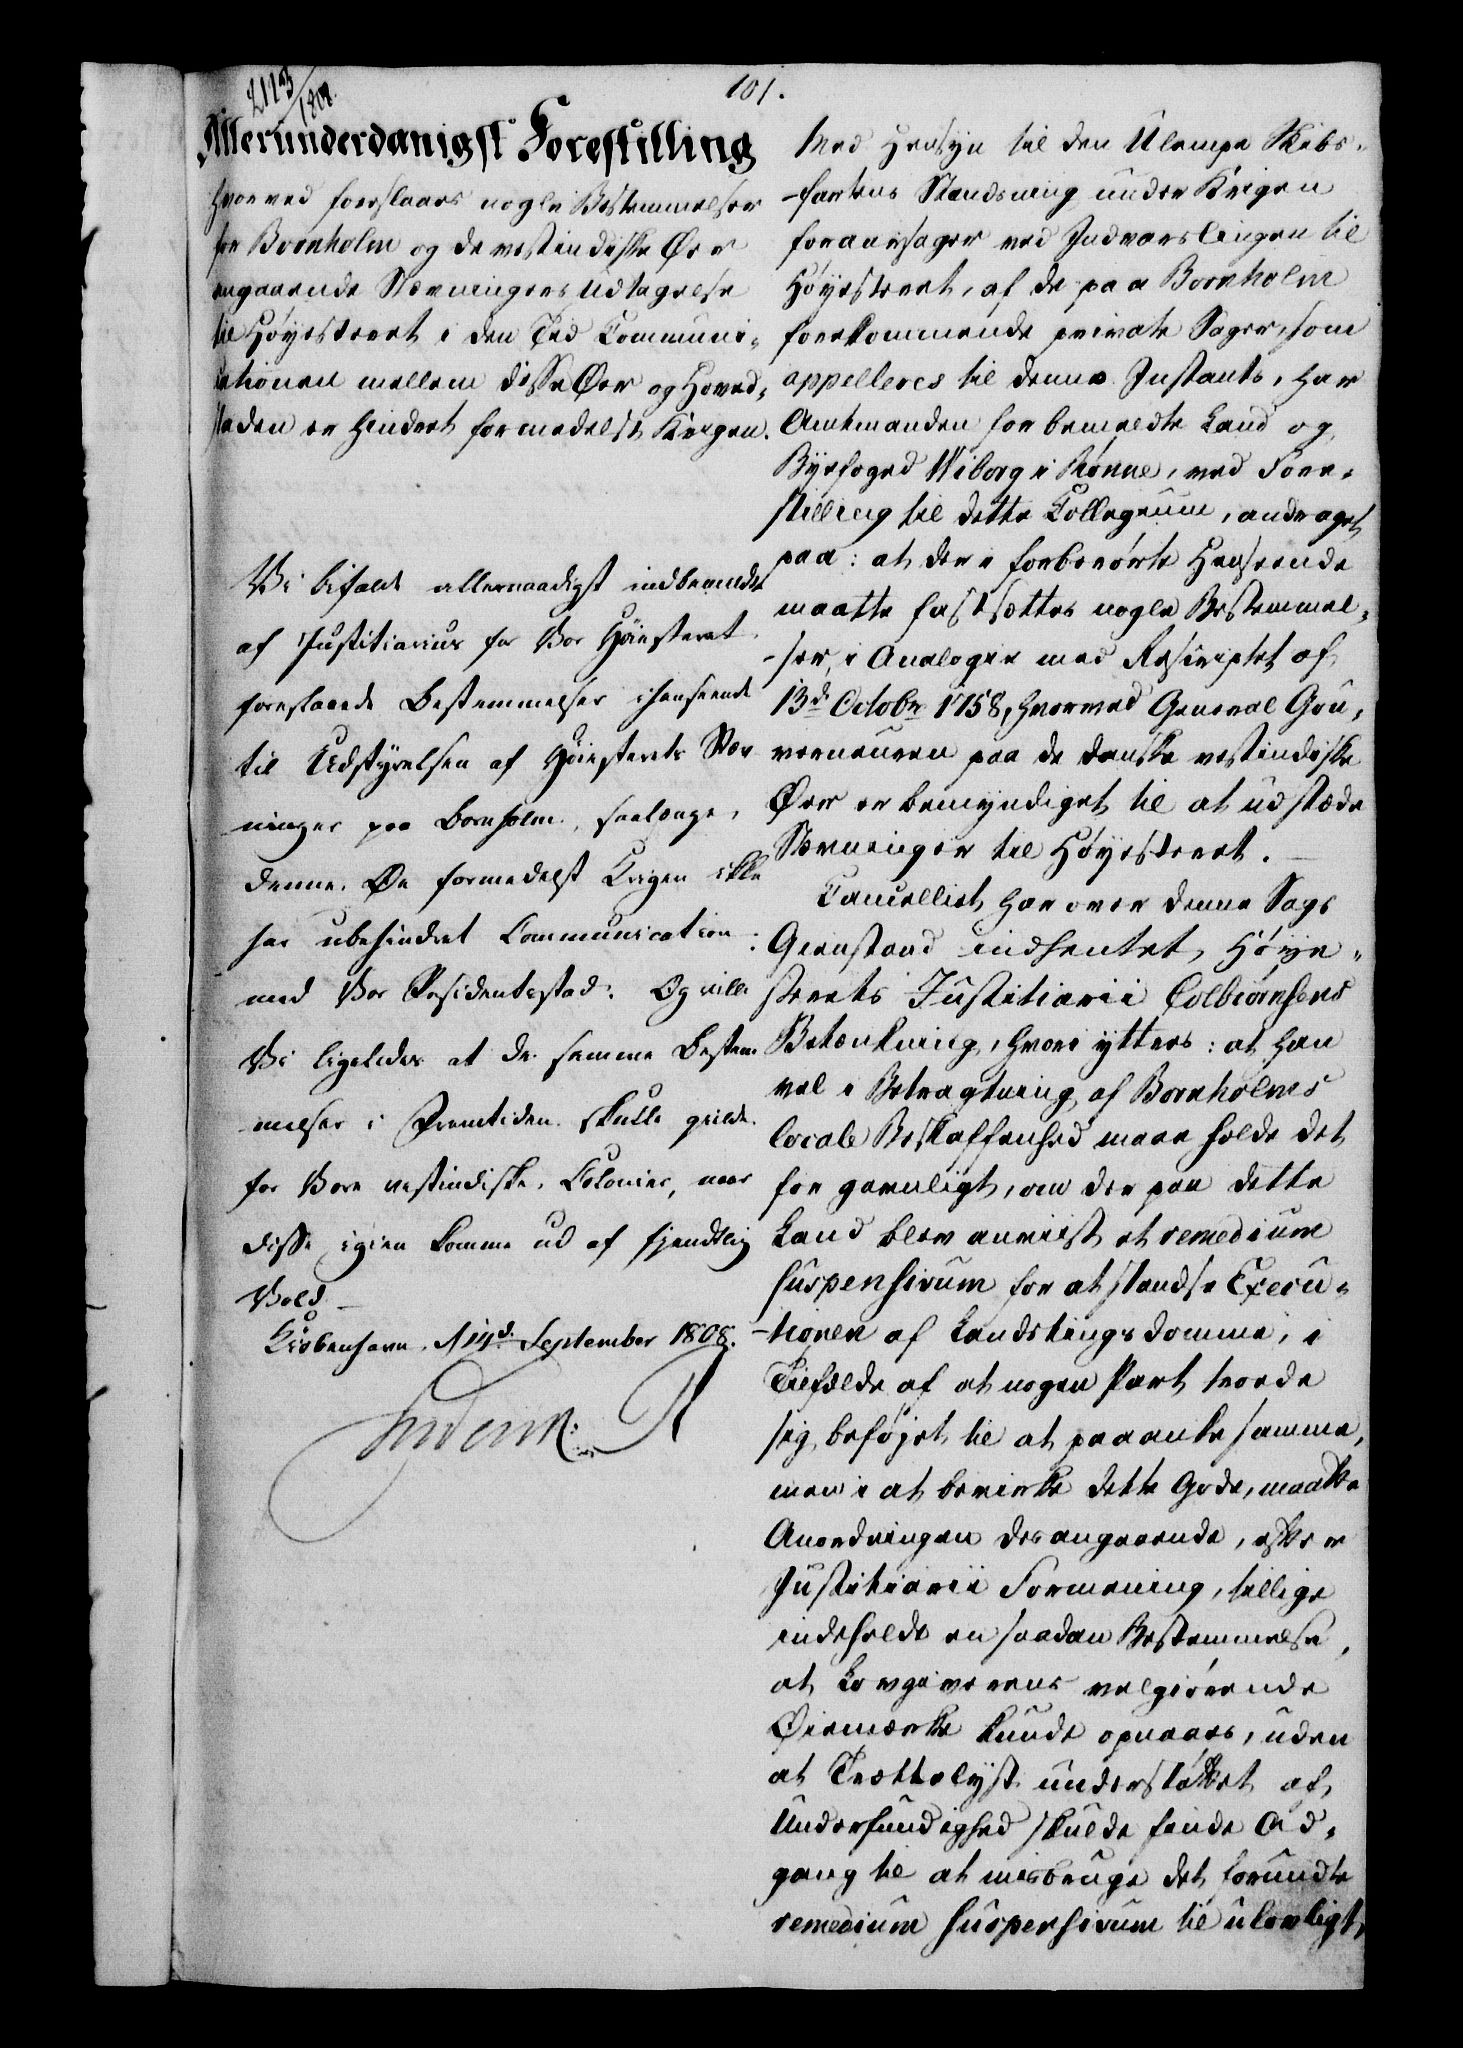 2113/1808.
101.
Allerunderdanigst Forestilling
hvorved foreslaaes nogle Bestemmelser
for Bornholm og de vestindiske Øer
angaaende Stævningers Udtagelse
til Høyesteret i den Tid Communi-
cationen mellem disse Øer og Hoved-
staden er hindret formedelst Krigen.
Vi bifalde allernaadigst indbemeldte
af Justitiarius for Vor Høiesteret
foreslaaede Bestemmelser ihenseende
til Udstyrelsen af Høiesterets Stæv
ninger paa Bornholm, saalænge
denne Øe formedelst Krigen ikke
har ubehindret Communication
med Vor Residentsstad. Og ville
Vi ligeledes at de samme Bestem
melser i Fremtiden skulle gielde
for Vore vestindiske Colonier, naar
disse igien komme ud af fjendtlig
Vold
Kiøbenhavn, d. 14d. September 1808.
Frederik R
Med Hensyn til den Ulempe Skibs-
-fartens Standsning under Krigen
foraarsager ved Indvarslingen til
Høyesteret, af de paa Bornholm
forekommende private Sager, som
appelleres til denne Instants, har
Amtmanden for bemeldte Land og
Byefoged Wiborg i Rønne, ved Fore-
stilling til dette Collegium, andraget
paa: at der i forberørte Henseende
maatte fastsættes nogle Bestemmel-
-ser, i Analogie med Rescriptet af
13d Octobr 1758, hvorved General Gou-
verneuren paa de danske vestindiske
Øer er bemyndiget til at udstæde
Stævninger til Høyesteret.
Cancelliet har over denne Sags
Gienstand indhentet, Høye-
sterets Justitiarii Colbiørnsens
Betænkning, hvori yttres: at han
vel i Betragtning af Bornholms
locale Beskaffenhed maae holde det
for gavnligt, om der paa dette
Land blev anviist et remedium
suspensivum for at standse Execu-
-tionen af Landstingsdomme, i
Tilfælde af at nogen Part troede
sig beføjet til at paaanke samme,
men i at bevirke dette Gode, maatte
Anordningen desangaaende, efter
Justitiarii Formening, tillige
indeholde en saadan Bestemmelse,
at Lovgiverens velgiørende
Øiemærke kunde opnaaes, uden
at Trættelyst understøttet af
Underfundighed skulde finde Ad-
gang til at misbruge det forundte
remedium suspensivum til ulovligt